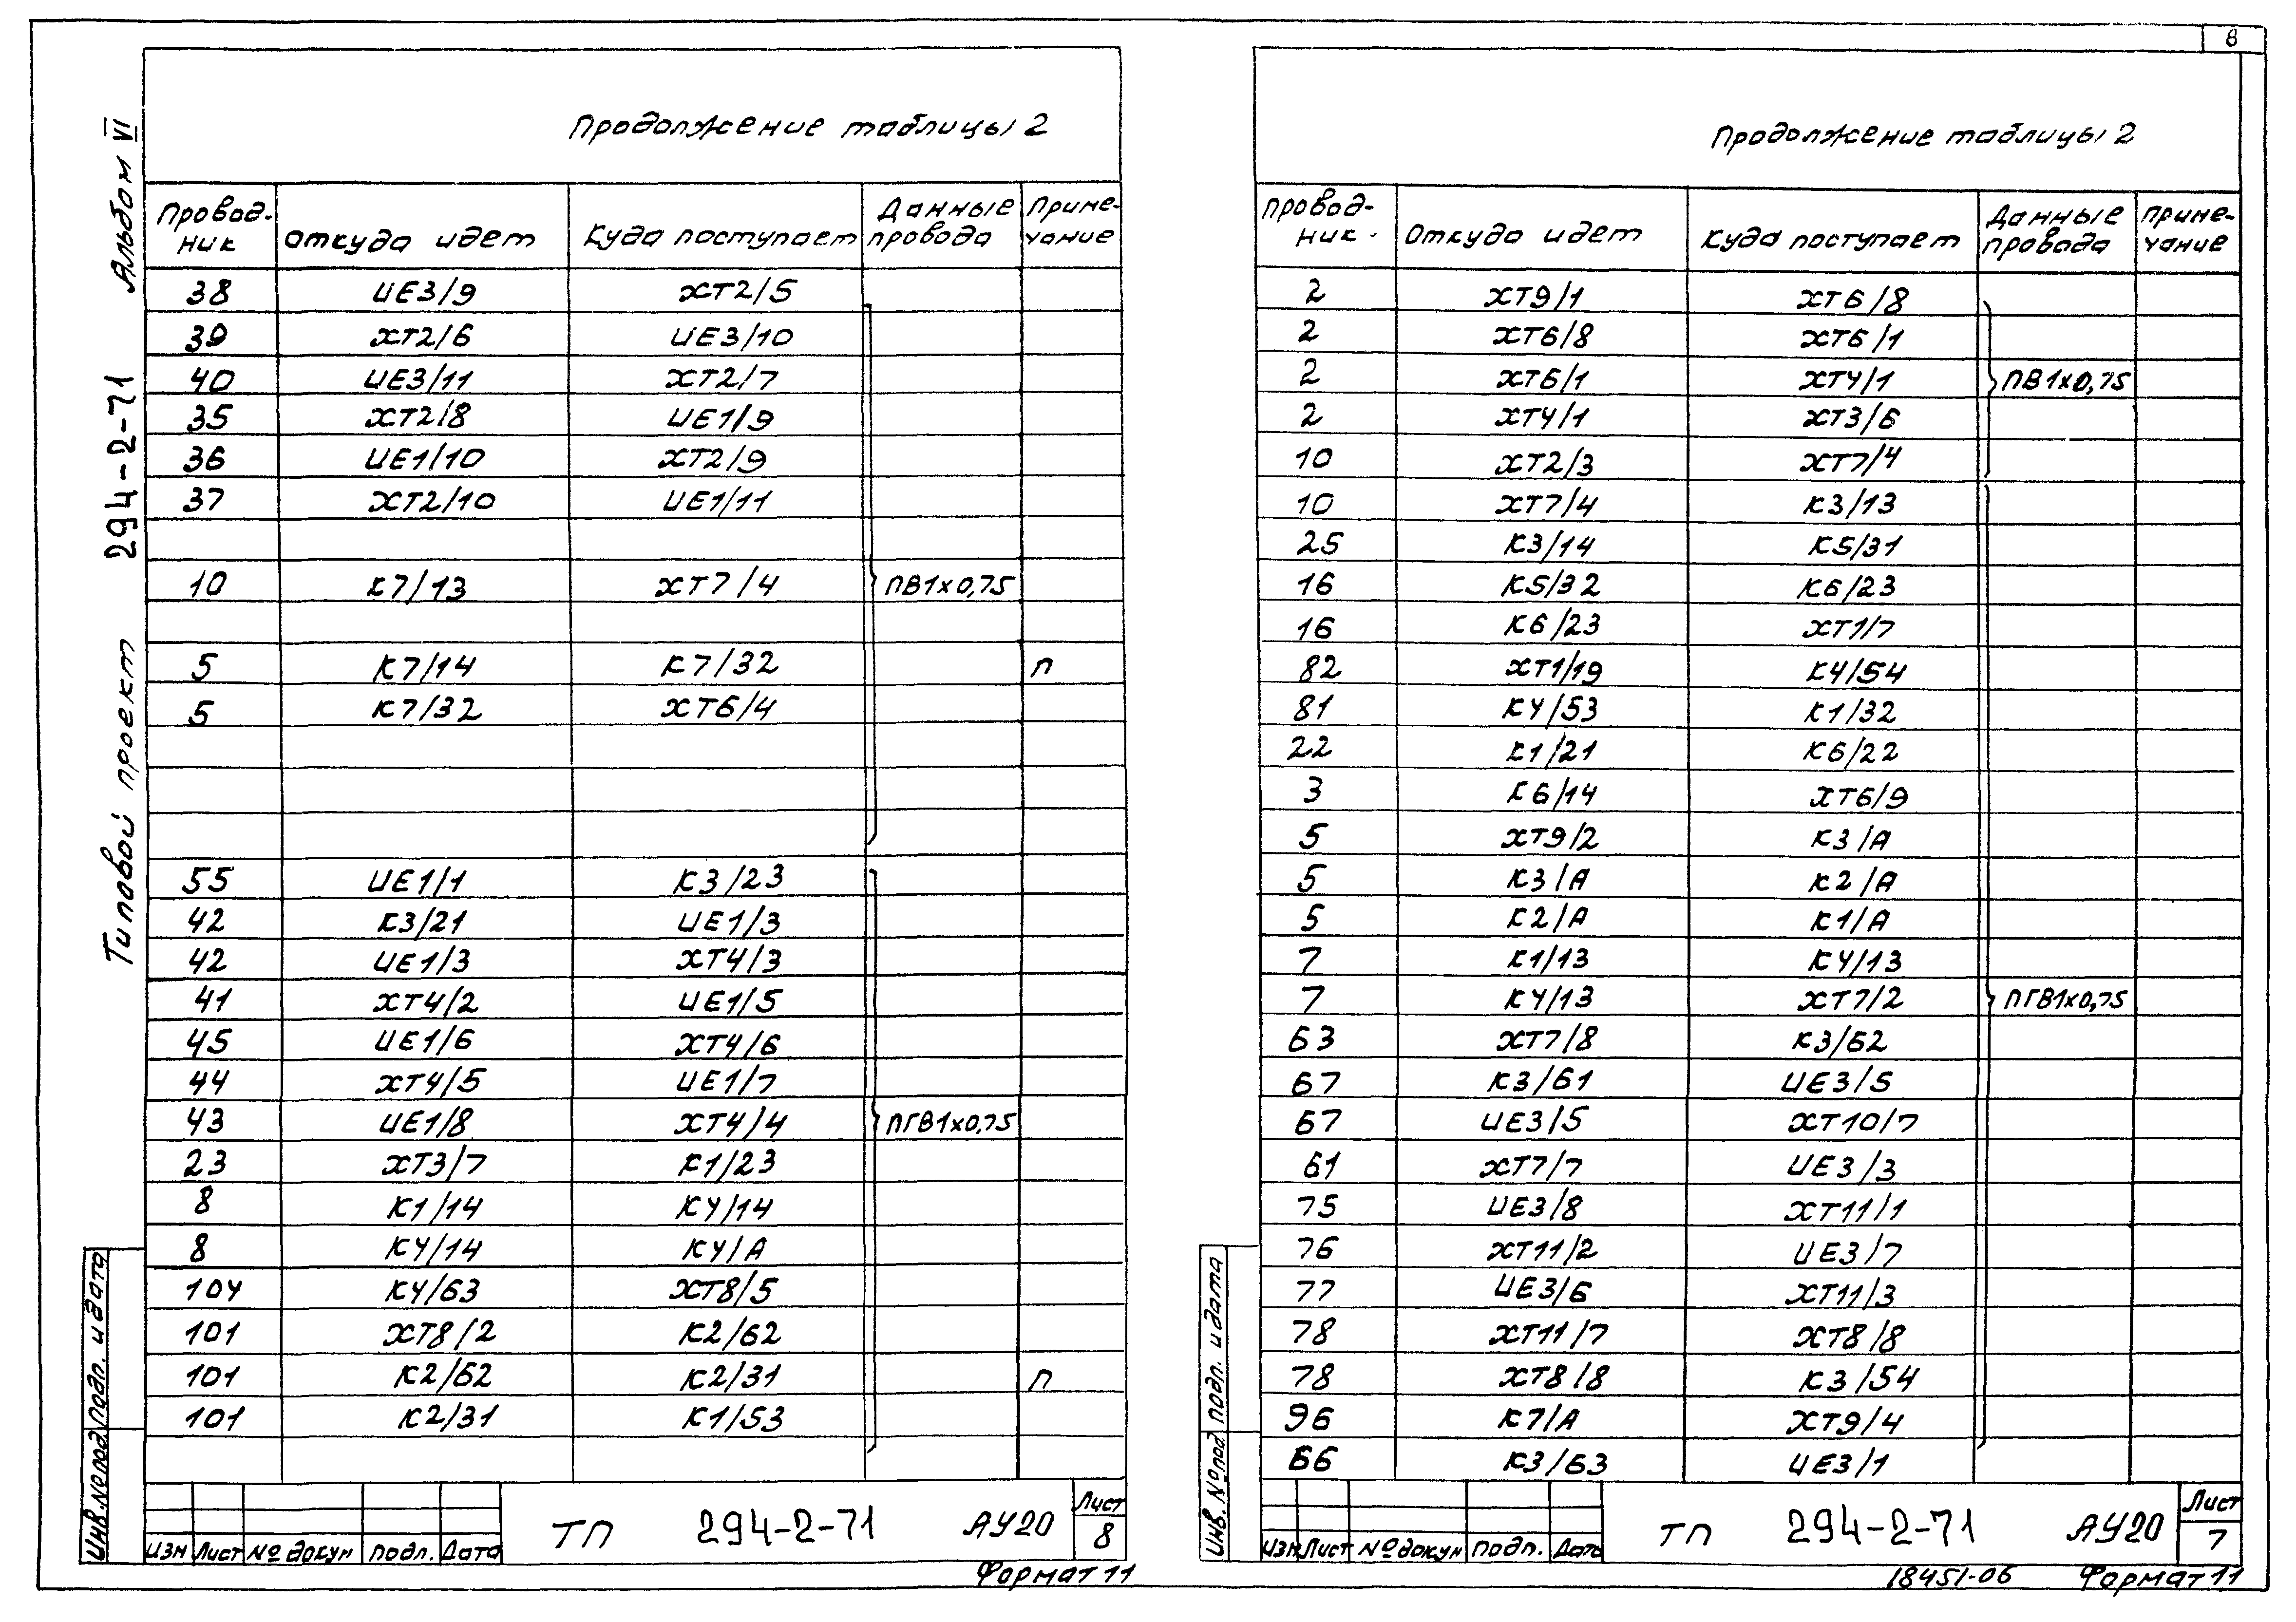 8
Альбом VI
294-2-71
Типовой проект
Продолжение таблицы 2
Провод-ник | Откуда идет | Куда поступает | Данные провода | Приме-чание
38 | ИЕ3/9 | ХТ2/5
39 | ХТ2/6 | ИЕ3/10
40 | ИЕ3/11 | ХТ2/7
35 | ХТ2/8 | ИЕ1/9
36 | ИЕ1/10 | ХТ2/9
37 | ХТ2/10 | ИЕ1/11
10 | К7/13 | ХТ7/4 | ПВ1х0,75
5 | К7/14 | К7/32 | п
5 | К7/32 | ХТ6/4
55 | ИЕ1/1 | К3/23
42 | К3/21 | ИЕ1/3
42 | ИЕ1/3 | ХТ4/3
41 | ХТ4/2 | ИЕ1/5
45 | ИЕ1/6 | ХТ4/6
44 | ХТ4/5 | ИЕ1/7
43 | ИЕ1/8 | ХТ4/4 | ПГВ1х0,75
23 | ХТ3/7 | К1/23
8 | К1/14 | К4/14
8 | К4/14 | К4/А
104 | К4/63 | ХТ8/5
101 | ХТ8/2 | К2/62
101 | К2/62 | К2/31 | п
101 | К2/31 | К1/53
Инв.№под | Подп. и дата
Изм | Лист | № докум | Подп. | Дата
ТП 294-2-71 АУ20
Лист
8
Формат 11
Продолжение таблицы 2
Провод-ник | Откуда идет | Куда поступает | Данные провода | Приме-чание
2 | ХТ9/1 | ХТ6/8
2 | ХТ6/8 | ХТ6/1
2 | ХТ6/1 | ХТ4/1 | ПВ1х0,75
2 | ХТ4/1 | ХТ3/6
10 | ХТ2/3 | ХТ7/4
10 | ХТ7/4 | К3/13
25 | К3/14 | К5/31
16 | К5/32 | К6/23
16 | К6/23 | ХТ1/7
82 | ХТ1/19 | К4/54
81 | К4/53 | К1/32
22 | К1/21 | К6/22
3 | К6/14 | ХТ6/9
5 | ХТ9/2 | К3/А
5 | К3/А | К2/А
5 | К2/А | К1/А
7 | К1/13 | К4/13
7 | К4/13 | ХТ7/2 | ПГВ1х0,75
63 | ХТ7/8 | К3/62
67 | К3/61 | ИЕ3/5
67 | ИЕ3/5 | ХТ10/7
61 | ХТ7/7 | ИЕ3/3
75 | ИЕ3/8 | ХТ11/1
76 | ХТ11/2 | ИЕ3/7
77 | ИЕ3/6 | ХТ11/3
78 | ХТ11/7 | ХТ8/8
78 | ХТ8/8 | К3/54
96 | К7/А | ХТ9/4
66 | К3/63 | ИЕ3/1
Инв.№под | Подп. и дата
Изм | Лист | № докум | Подп. | Дата
ТП 294-2-71 АУ20
Лист
7
18451-06 Формат 11